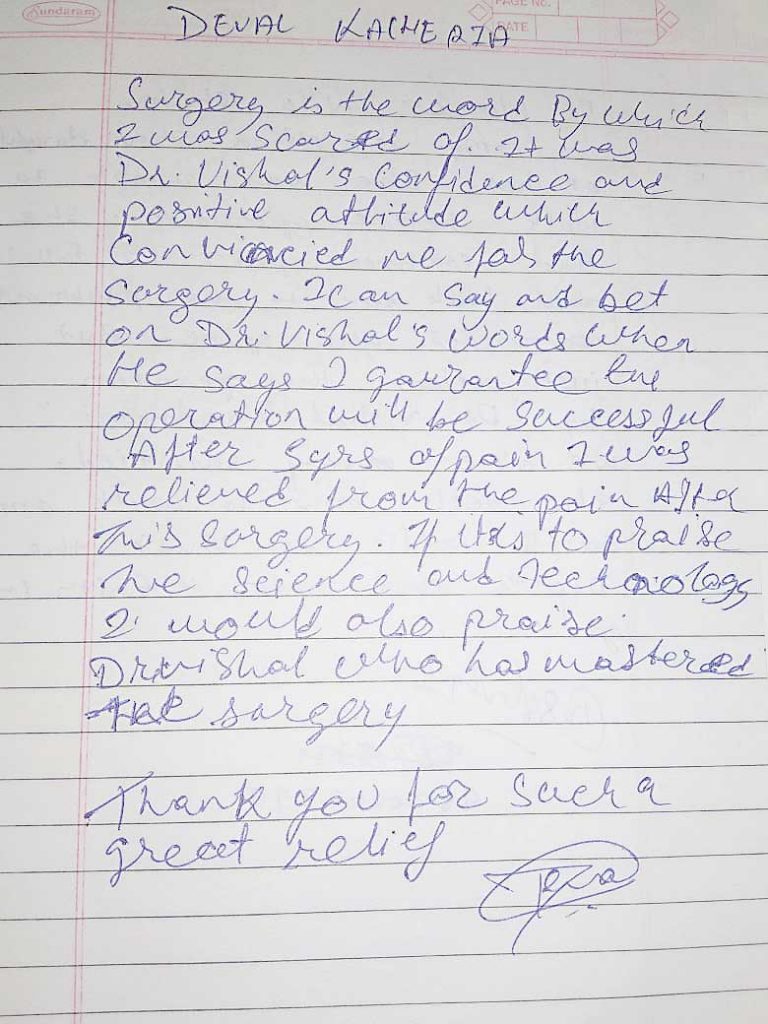 Sundaram
PAGE NO.
DATE
DEVAL KACHERIA
Surgery is the word By which
I was Scared of. It was
Dr. Vishal's Confidence and
positive attitude which
Convincied me for the
Surgery. I can say and bet
on Dr. Vishal's words when
He says I gaurantee the
operation will be successful
After 5yrs of pain I was
relieved from the pain After
this surgery. If its to praise
the science and technology
I would also praise
Dr. Vishal who has mastered
the surgery
Thank you for such a
great relief